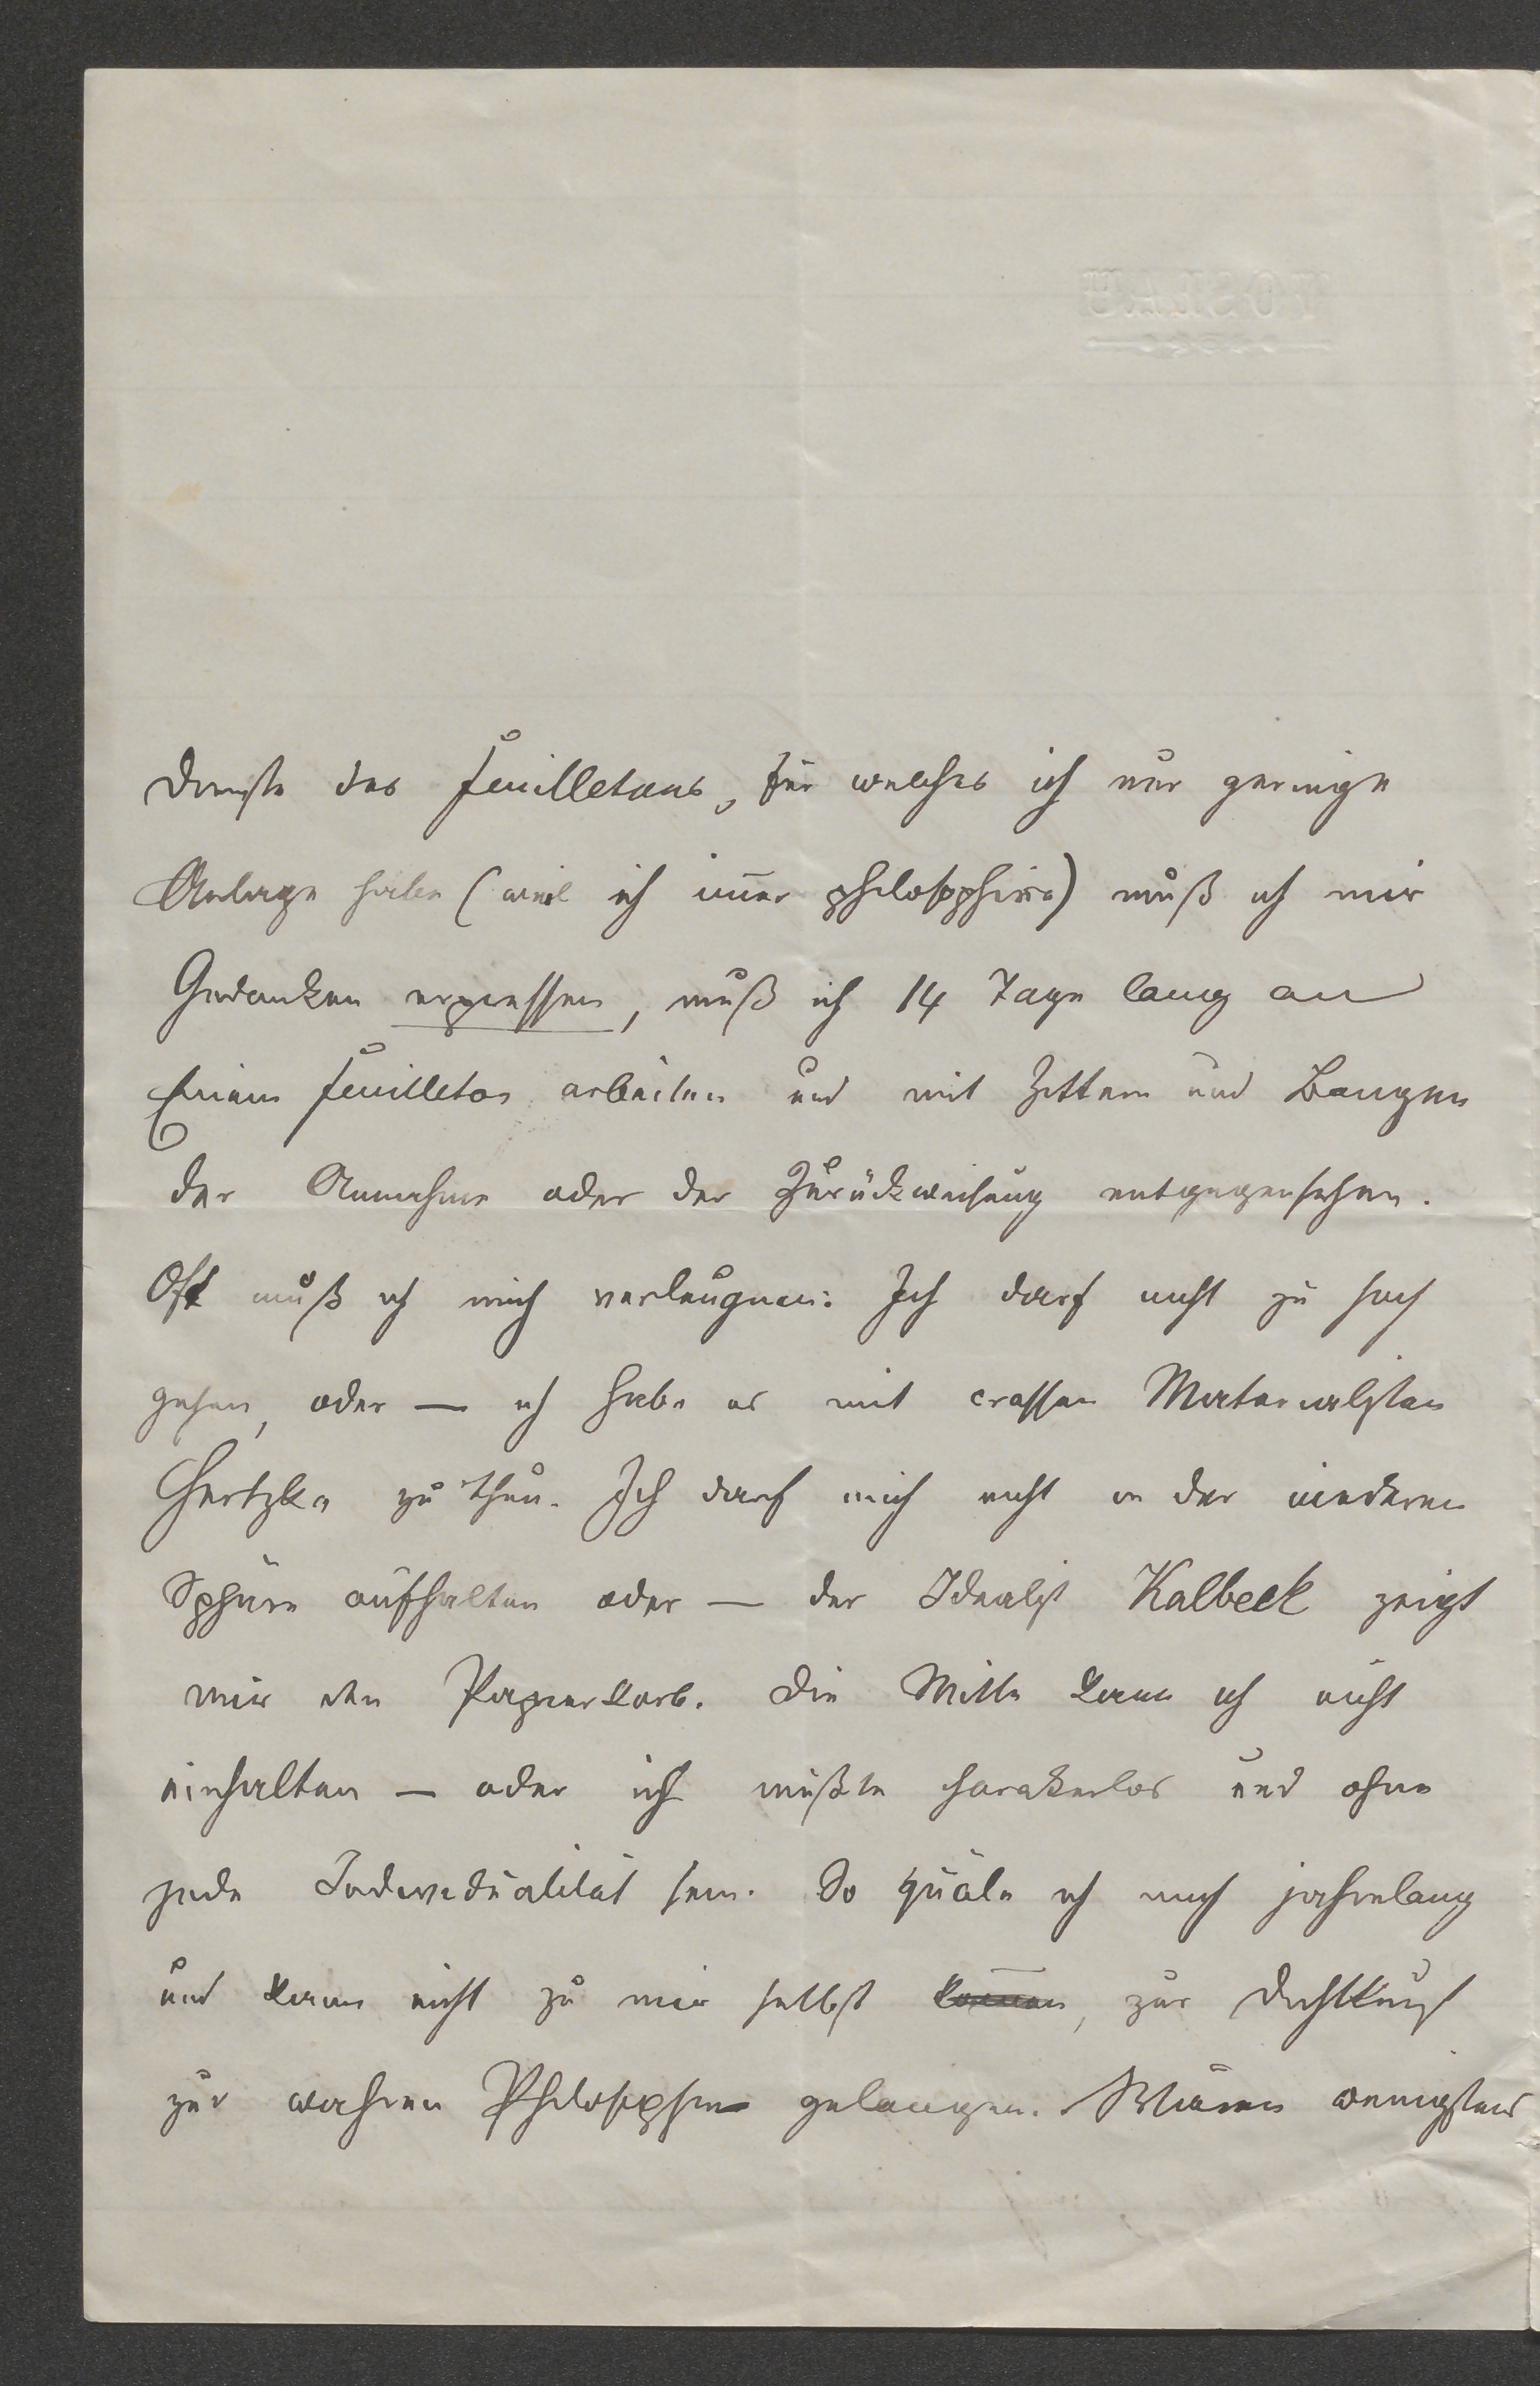 VÖSLAU
Dienste des Feuilletons, für welches ich nur geringe
Anlage habe (weil ich im̅er philosophire) muß ich mir
Gedanken erpressen, muß ich 14 Tage lang an
Einem Feuilleton arbeiten und mit Zittern und Bangen
der Annahme oder der Zurückweisung entgegensehen.
Oft muß ich mich verleugnen: Ich darf nicht zu hoch
gehen, oder — ich habe es mit crassen Materialisten
Hertzka zu thun. Ich darf mich nicht in der niederen
Sphäre aufhalten oder — der Idealist Kalbeck zeigt
mir den Papierkorb. Die Mitte kann ich nicht
einhalten — oder ich müßte charakerlos und ohne
jede Individualität sein. So quäle ich mich jahrelang
und kann nicht zu mir selbst kommen, zur Dichtkunst
zur wahren Philosophie gelangen. Wären wenigstens